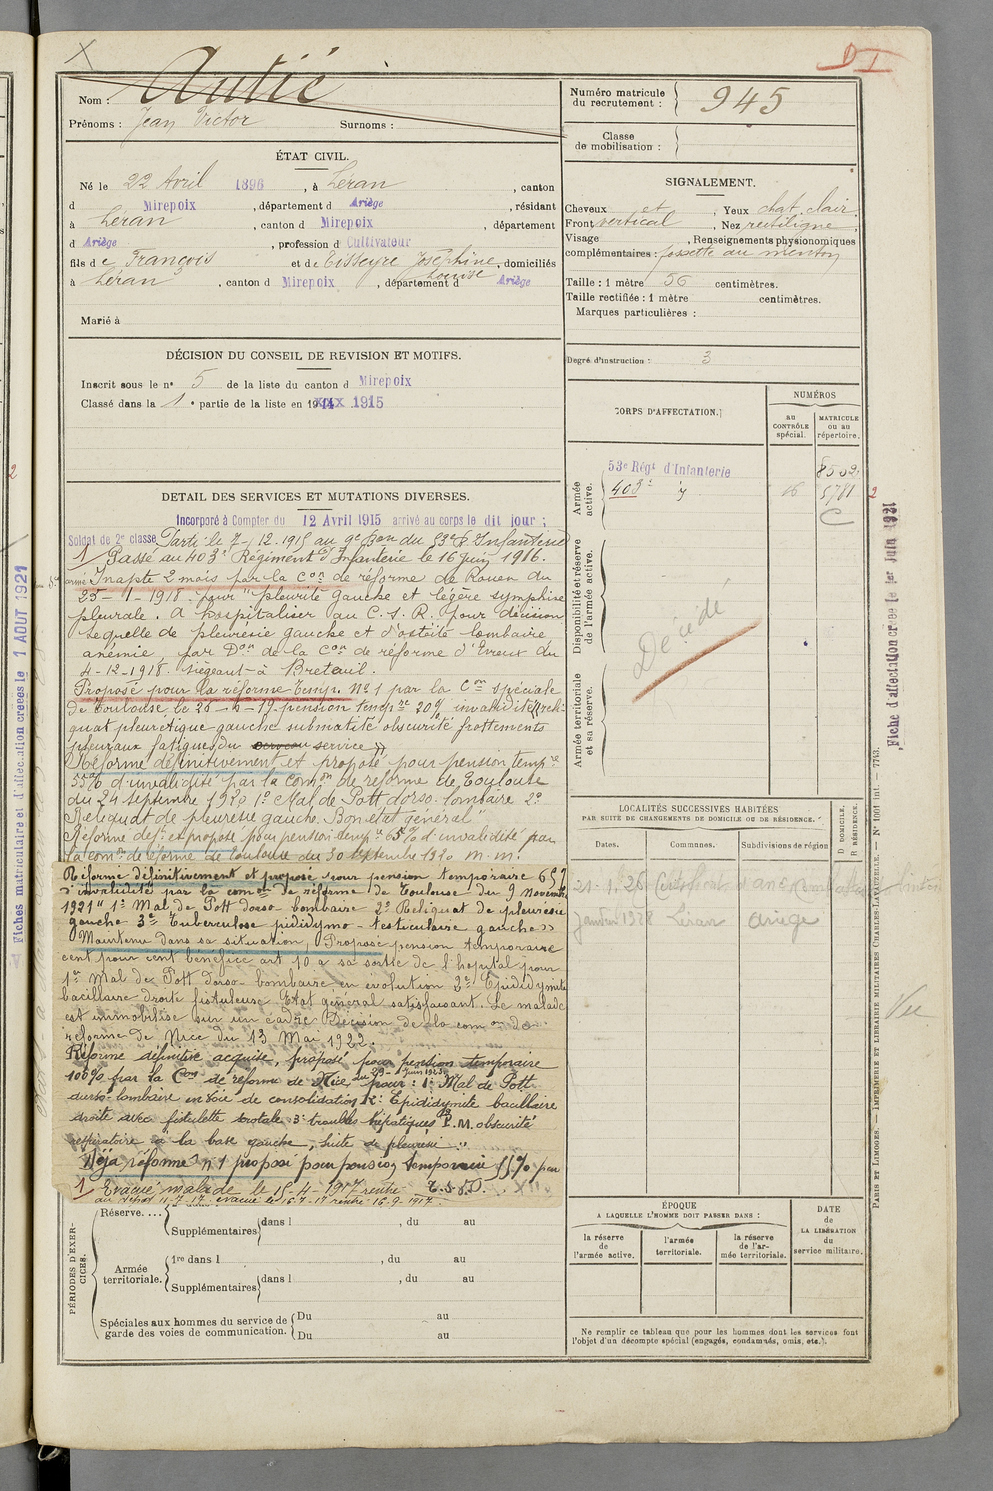 X
D I
Nom : Autié
Prénoms : Jean Victor Surnoms :
Numéro matricule
du recrutement : 945
Classe
de mobilisation :
ÉTAT CIVIL.
Né le 22 Avril 1896, à Léran, canton
d Mirepoix, département d Ariège, résidant
à Léran, canton d Mirepoix, département
d Ariège, profession d Cultivateur
fils de François et de Eisseyre Joséphine Louise, domiciliés
à Léran, canton d Mirepoix, département d Ariège
Marié à
SIGNALEMENT.
Cheveux et, Yeux chat. clair
Front vertical, Nez rectiligne,
Visage , Renseignements physionomiques
complémentaires : fossette au menton
Taille : 1 mètre 56 centimètres.
Taille rectifiée : 1 mètre centimètres.
Marques particulières :
Degré d'instruction : 3
DÉCISION DU CONSEIL DE REVISION ET MOTIFS.
Inscrit sous le n° 5 de la liste du canton d Mirepoix
Classé dans la 1e partie de la liste en 1914 XXX 1915
DÉTAIL DES SERVICES ET MUTATIONS DIVERSES.
Incorporé à Compter du 12 Avril 1915 arrivé au corps le dit jour ;
Soldat de 2e classe Parti le 7-12.1915 au 9e Bon du 53e R. d'Infanterie
1 Passé au 403e Régiment d'Infanterie le 16 juin 1916.
Inapte 2 mois par la Con de réforme de Rouen du
25-1-1918 pour "pleurite gauche et légère symphise
pleurale. A hospitaliser au C.S.R. pour décision
Sequelle de pleuresie gauche et d'ostéite lombaire,
anémie par Don de la Con de réforme d'Evreux du
4-12-1918. siégeant à Breteuil.
Proposé pour la réforme temp. N° 1 par la Con spéciale
de Toulouse le 25-6-19 pension temp.re 20% invalidité (reli-
quat pleurétique gauche submatité obscurité frottements
pleuraux fatigues du service »
Réformé définitivement et proposé pour pension temp.re
55% d'invalidité par la Com.on de réforme de Toulouse
du 24 septembre 1920 1° Mal de Pott dorso-lombaire 2°
Reliquat de pleuresie gauche. Bon état général"
Réformé def.t et proposé pour pension temp.re 65% d'invalidité par
la com.on de réforme de Toulouse du 30 septembre 1920 m.m.
Réformé définitivement et proposé pour pension temporaire 65%
d'invalidité par la com.on de réforme de Toulouse du 9 novembre
1921 "1° Mal de Pott dorso-lombaire 2° Reliquat de pleurésie
gauche 3° Tuberculose pididymo-testiculaire gauche»
Maintenu dans sa situation, Proposé pension temporaire
cent pour cent bénéfice art 10 à sa sortie de l'hopital pour
1° Mal de Pott dorso-lombaire en évolution 2° Epididymite
bacillaire droite fistuleuse Etat général satisfaisant. Le malade
est immobilisé sur un cadre. Décision de la com.on de
réforme de Nice du 13 Mai 1922.
Réforme définitive acquise, proposé pour pension temporaire
100% par la Con de réforme de Nice, du 29-1 juin 1923 pour : 1° Mal de Pott
dorso-lombaire en voie de consolidation 2° Epididymite bacillaire
droite avec fistulette scrotale 3° troubles hépatiques P.M. obscurité
respiratoire à la base gauche, suite de pleurésie "
Déjà réformé n°1 proposé pour pension temporaire 55% par
1 Evacué malade le 15-4-1917 rentré
au dépot 11.7.17. évacué le 16-7-17 rentré 16.9.1917.
CORPS D'AFFECTATION.
NUMÉROS
AU
CONTRÔLE
spécial.
MATRICULE
ou au
répertoire.
Armée
active.
53e Régt d'Infanterie 8502
403e 16 5781 2
Disponibilité et réserve
de l'armée active.
Décédé
Armée territoriale
et sa réserve.
LOCALITÉS SUCCESSIVES HABITÉES
PAR SUITE DE CHANGEMENTS DE DOMICILE OU DE RÉSIDENCE.
Dates.
Communes.
Subdivisions de région
D DOMICILE.
R RÉSIDENCE.
21-1.26
Janvier 1928 Léran Ariège
Vu
PÉRIODES D'EXERCICES.
Réserve....
Supplémentaires dans l , du au
Armée
territoriale.
1re dans l , du au
Supplémentaires dans l , du au
Spéciales aux hommes du service de
garde des voies de communication.
Du au
Du au
ÉPOQUE
A LAQUELLE L'HOMME DOIT PASSER DANS :
la réserve
de
l'armée active.
l'armée
territoriale.
la réserve
de l'ar-
mée territoriale.
DATE
de
LA LIBÉRATION
du
service militaire.
Ne remplir ce tableau que pour les hommes dont les services font
l'objet d'un décompte spécial (engagés, condamnés, omis, etc.).
Fiche d'affectation créée le 1er Juin 1921
PARIS ET LIMOGES. — IMPRIMERIE ET LIBRAIRIE MILITAIRES CHARLES-LAVAUZELLE. — N° 1001 int. — 7743.
Fiches matriculaire et d'affectation créées le 1 AOUT 1921
2